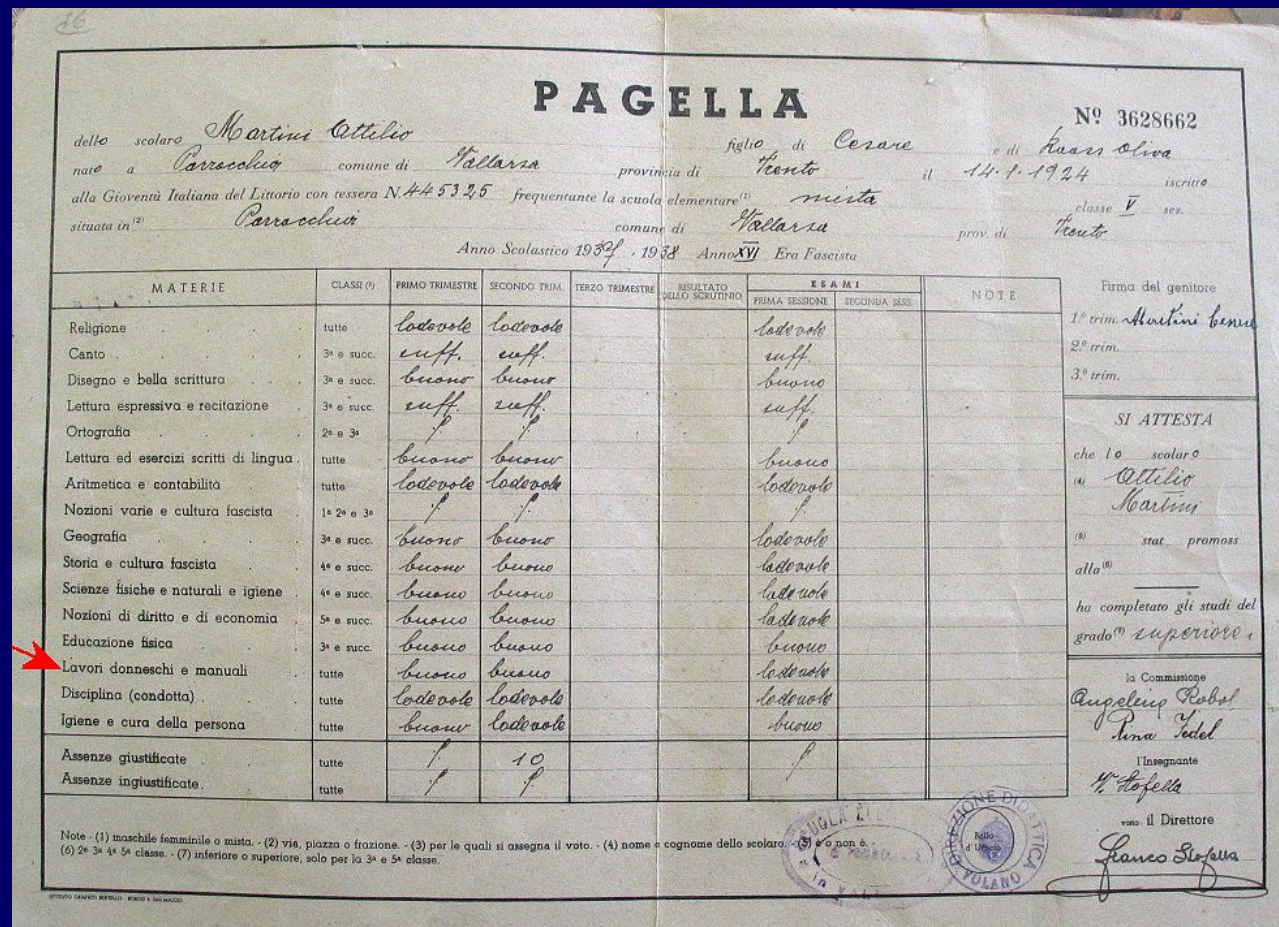 26
PAGELLA
Nº 3628662
dello scolaro Martini Attilio figlio di Cesare e di Raoss Oliva
nato a Parrocchia comune di Vallarsa provincia di Trento il 14.1.1924 iscritto
alla Gioventù Italiana del Littorio con tessera N. 445325 frequentante la scuola elementare (1) mista classe V sez.
situata in (2) Parrocchia comune di Vallarsa prov. di Trento
Anno Scolastico 1937 - 1938 Anno XVI Era Fascista
MATERIE CLASSI (3) PRIMO TRIMESTRE SECONDO TRIM. TERZO TRIMESTRE RISULTATO DELLO SCRUTINIO ESAMI PRIMA SESSIONE SECONDA SESS. NOTE
Religione tutte lodevole lodevole lodevole
Canto 3ª e succ. suff. suff. suff.
Disegno e bella scrittura 3ª e succ. buono buono buono
Lettura espressiva e recitazione 3ª e succ. suff. suff. suff.
Ortografia 2ª e 3ª
Lettura ed esercizi scritti di lingua tutte buono buono buono
Aritmetica e contabilità tutte lodevole lodevole lodevole
Nozioni varie e cultura fascista 1ª 2ª e 3ª
Geografia 3ª e succ. buono buono lodevole
Storia e cultura fascista 4ª e succ. buono buono lodevole
Scienze fisiche e naturali e igiene 4ª e succ. buono buono lodevole
Nozioni di diritto e di economia 5ª e succ. buono buono lodevole
Educazione fisica 3ª e succ. buono buono buono
Lavori donneschi e manuali tutte buono buono lodevole
Disciplina (condotta) tutte lodevole lodevole lodevole
Igiene e cura della persona tutte buono lodevole buono
Assenze giustificate tutte 10
Assenze ingiustificate tutte
Firma del genitore
1.º trim. Martini Cesare
2.º trim.
3.º trim.
SI ATTESTA
che lo scolaro
(4) Attilio
Martini
(5) stat promoss
alla (6)
ha completato gli studi del
grado (7) superiore
la Commissione
Angelina Robol
Rina Fedel
l'Insegnante
V. Stofella
visto: il Direttore
Franco Stofella
Note - (1) maschile femminile o mista. - (2) via, piazza o frazione. - (3) per le quali si assegna il voto. - (4) nome e cognome dello scolaro. - (5) è o non è. -
(6) 2ª 3ª 4ª 5ª classe. - (7) inferiore o superiore, solo per la 3ª e 5ª classe.
Bollo d'Ufficio
DIREZIONE DIDATTICA
VOLANO